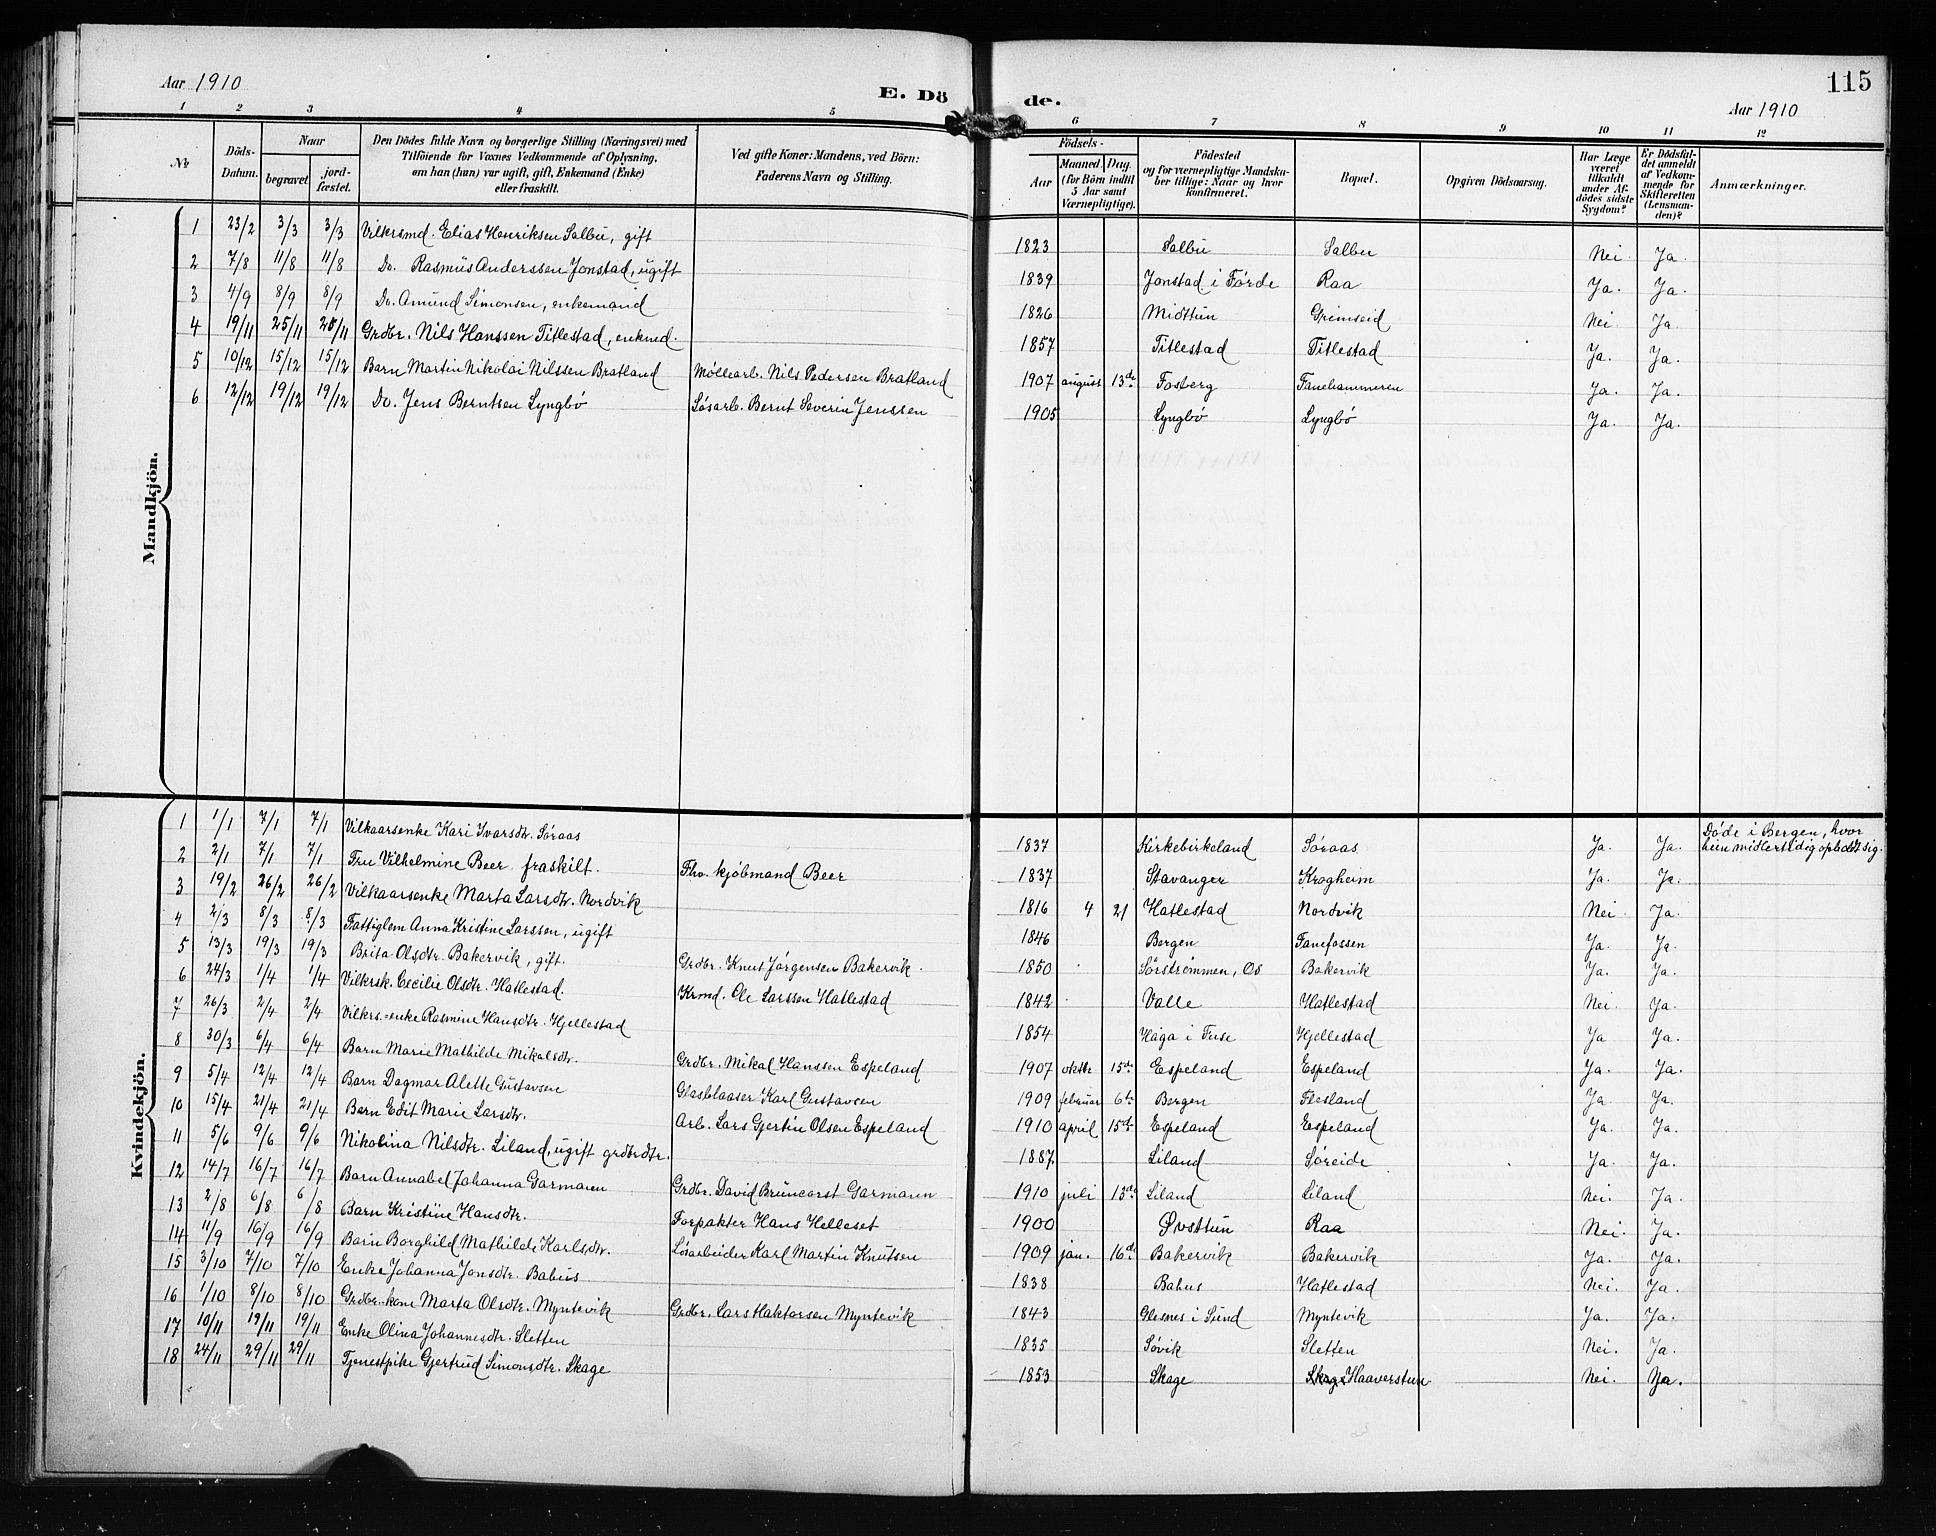 Aar 1910
E. Dö
de.
115
Aar 1910
1 2 3 4 5 6 7 8 9 10 11 12
№
Döds-Datum.
Naar
begravet.
jordfæstet.
Den Dödes fulde Navn og borgerlige Stilling (Næringsvei) med Tilföiende for Voxnes Vedkommende af Oplysning, om han (hun) var ugift, gift, Enkemand (Enke) eller fraskilt.
Ved gifte Koner: Mandens, ved Börn: Faderens Navn og Stilling.
Födsels-
Aar
Maaned.
Dag.
(for Börn indtil 5 Aar samt Værnepligtige).
Födested og for værnepligtige Mandskaber tillige: Naar og hvor konfirmeret.
Bopæl.
Opgiven Dödsaarsag.
Har Læge været tilkaldt under Afdödes sidste Sygdom?
Er Dödsfaldet anmeldt af Vedkommende for Skifteretten (Lensmanden)?
Anmærkninger.
Mandkjön.
1 23/2 3/3 3/3 Vilkrsmd. Elias Henriksen Salbu, gift 1823 Salbu Salbu Nei. Ja.
2 7/8 11/8 11/8 Do. Rasmus Anderssen Jonstad, ugift 1839 Jonstad i Førde Raa Ja. Ja.
3 4/9 8/9 8/9 Do. Amund Simonsen, enkemand 1826 Midttun Grimseid Nei. Ja
4 19/11 25/11 25/11 Grdbr. Nils Hanssen Titlestad, enkmd. 1857 Titlestad Titlestad Ja. Ja.
5 10/12 15/12 15/12 Barn Martin Nikolai Nilssen Bratland Møllearb. Nils Pedersen Bratland 1907 august 13de Fosberg Fanehammeren Ja. Ja.
6 12/12 19/12 19/12 Do. Jens Berntsen Lyngbø Løsarb. Bernt Severin Jenssen 1905 Lyngbø Lyngbø Ja. Ja.
Kvindekjön.
1 1/1 7/1 7/1 Vilkaarsenke Kari Ivarsdtr. Søraas 1837 Kirkebirkeland Søraas Ja. Ja. Døde i Bergen, hvor hun midlertidig opholdt sig.
2 2/1 7/1 7/1 Fru Vilhelmine Beer, fraskilt. Fhv. kjøbmand Beer 1837 Stavanger Krogheim Ja. Ja.
3 19/2 26/2 26/2 Vilkaarsenke Marta Larsdtr. Nordvik 1816 4 21 Hatlestad Nordvik Nei. Ja.
4 2/3 8/3 8/3 Fattiglem Anna Kristine Larssen, ugift 1846 Bergen Fanefossen Ja. Ja.
5 13/3 19/3 19/3 Brita Olsdtr. Bakervik, gift. Grdbr. Knut Jørgensen Bakervik. 1850 Sørstrømmen, Os Bakervik Ja. Ja.
6 24/3 1/4 1/4 Vilkrsk. Cecilie Olsdtr. Hatlestad. Krmd. Ole Larssen Hatlestad 1842 Valle Hatlestad Nei. Ja.
7 26/3 2/4 2/4 Vilkrs.-enke Rasmine Hansdtr. Hjellestad 1854 Haga i Fuse Hjellestad Ja Ja.
8 30/3 6/4 6/4 Barn Marie Mathilde Mikalsdtr. Grdbr. Mikal Hanssen Espeland 1907 oktbr. 15de Espeland Espeland Ja. Ja.
9 5/4 12/4 12/4 Barn Dagmar Alette Gustavsen Glasblaaser Karl Gustavsen 1909 februar 6te Bergen Flesland Ja. Ja.
10 15/4 21/4 21/4 Barn Edit Marie Larsdtr. Arb. Lars Gjertin Olsen Espeland 1910 april 15de Espeland Espeland Ja. Ja.
11 5/6 9/6 9/6 Nikolina Nilsdtr. Liland, ugift grdbrdtr. 1887. Liland Søreide Ja. Ja.
12 14/7 16/7 16/7 Barn Annabel Johanna Garmann Grdbr. David Bruncorst Garmann 1910 juli 13de Liland Liland Nei. Ja.
13 2/8 6/8 6/8 Barn Kristine Hansdtr. Forpakter Hans Helleset 1900 Øvsttun Raa Nei. Ja.
14 11/9 16/9 16/9 Barn Borghild Mathilde Karlsdtr. Løsarbeider Karl Martin Knutsen 1909 jan. 16de Bakervik Bakervik Ja. Ja.
15 3/10 7/10 7/10 Enke Johanna Jonsdtr. Babus 1838 Babus Hatlestad Nei. Ja.
16 1/10 8/10 8/10 Grdbr.-kone Marta Olsdtr. Myntevik Grdbr. Lars Haktorsen Myntevik 1843 Glesnes i Sund Myntevik Ja. Ja.
17 10/11 19/11 19/11 Enke Olina Johannesdtr. Sletten 1835 Søvik Sletten Nei. Ja.
18 24/11 29/11 29/11 Tjenestpike Gjertrud Simonsdtr. Skage 1853 Skage Skage Haaverstun. Nei. Ja.